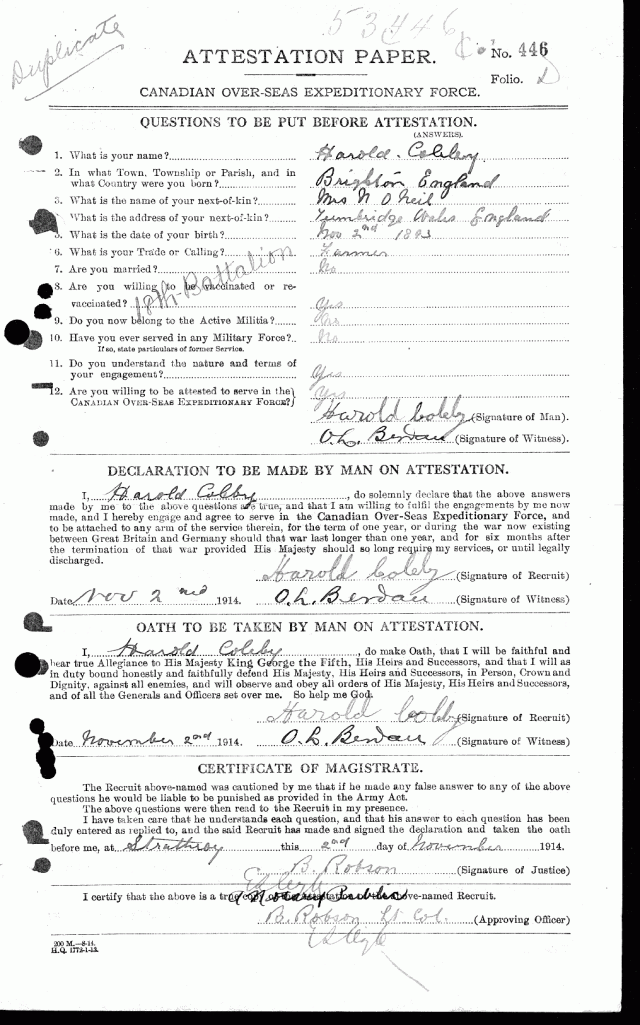 Duplicate
53446
ATTESTATION PAPER.
No. 446
Folio.
CANADIAN OVER-SEAS EXPEDITIONARY FORCE.
QUESTIONS TO BE PUT BEFORE ATTESTATION.
(ANSWERS).
1. What is your name? Harold Cobby
2. In what Town, Township or Parish, and in
what Country were you born? Brighton England
3. What is the name of your next-of-kin? Mrs N O Neil
What is the address of your next-of-kin? Tumbridge Wales England
5. What is the date of your birth? Nov 2nd 1893
6. What is your Trade or Calling? Farmer
7. Are you married? No
8. Are you willing to be vaccinated or re-
vaccinated? Yes
18th Battalion
9. Do you now belong to the Active Militia? No
10. Have you ever served in any Military Force? No
If so, state particulars of former Service.
11. Do you understand the nature and terms of
your engagement? Yes
12. Are you willing to be attested to serve in the
CANADIAN OVER-SEAS EXPEDITIONARY FORCE? Yes
Harold Cobby (Signature of Man).
O.L. Berdan (Signature of Witness).
DECLARATION TO BE MADE BY MAN ON ATTESTATION.
I, Harold Cobby, do solemnly declare that the above answers
made by me to the above questions are true, and that I am willing to fulfil the engagements by me now
made, and I hereby engage and agree to serve in the Canadian Over-Seas Expeditionary Force, and
to be attached to any arm of the service therein, for the term of one year, or during the war now existing
between Great Britain and Germany should that war last longer than one year, and for six months after
the termination of that war provided His Majesty should so long require my services, or until legally
discharged.
Harold Cobby (Signature of Recruit)
Date Nov 2nd 1914. O.L. Berdan (Signature of Witness)
OATH TO BE TAKEN BY MAN ON ATTESTATION.
I, Harold Cobby, do make Oath, that I will be faithful and
bear true Allegiance to His Majesty King George the Fifth, His Heirs and Successors, and that I will as
in duty bound honestly and faithfully defend His Majesty, His Heirs and Successors, in Person, Crown and
Dignity, against all enemies, and will observe and obey all orders of His Majesty, His Heirs and Successors,
and of all the Generals and Officers set over me. So help me God.
Harold Cobby (Signature of Recruit)
Date November 2nd 1914. O.L. Berdan (Signature of Witness)
CERTIFICATE OF MAGISTRATE.
The Recruit above-named was cautioned by me that if he made any false answer to any of the above
questions he would be liable to be punished as provided in the Army Act.
The above questions were then read to the Recruit in my presence.
I have taken care that he understands each question, and that his answer to each question has been
duly entered as replied to, and the said Recruit has made and signed the declaration and taken the oath
before me, at Strathroy this 2nd day of November 1914.
B. Robson (Signature of Justice)
I certify that the above is a true copy of the attestation of the above-named Recruit.
B. Robson Lt Col. (Approving Officer)
200 M.—8-14.
H.Q. 1772-1-13.